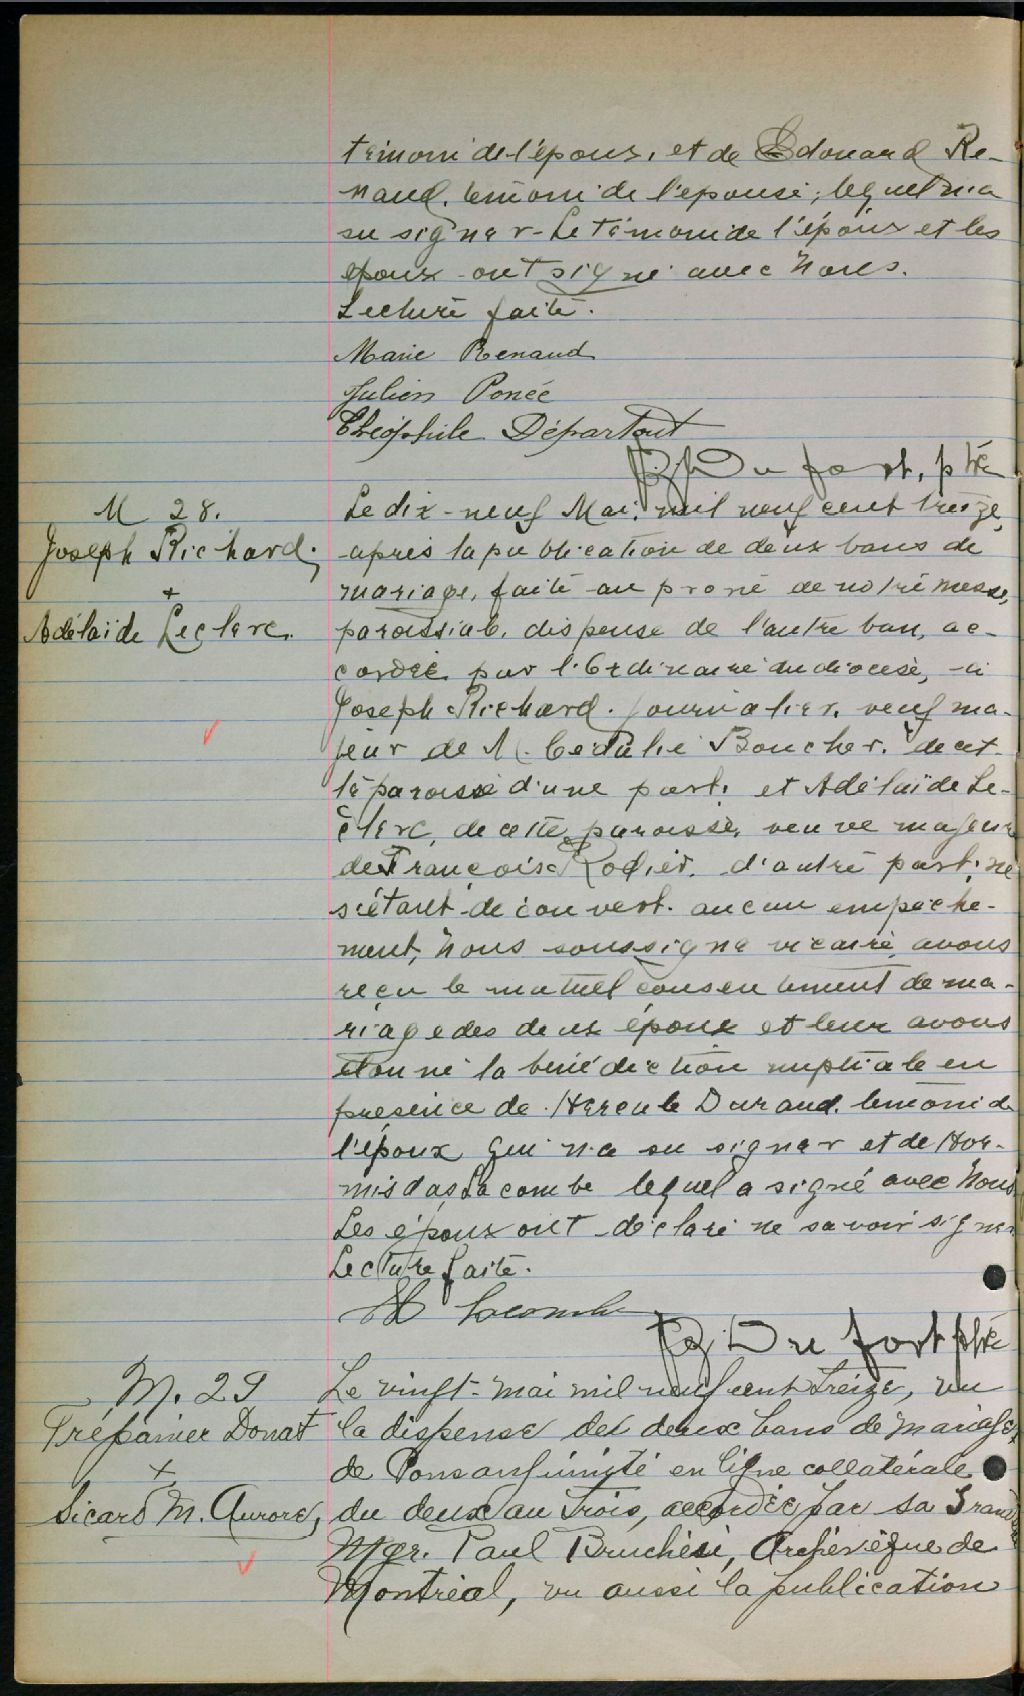 témoin de l'époux, et de Edouard Re-
naud, témoin de l'épouse, lequel n'a
su signer - Le témoin de l'époux et les
époux ont signé avec Nous.
Lecture faite.
Marie Renaud
Julien Poncé
Théophile Départout
Dufort, ptre
M 28.
Joseph Richard.
+
Adélaïde Leclerc.
Le dix-neuf Mai, mil neuf cent treize,
après la publication de deux bans de
mariage, faite au prône de notre messe,
paroissiale, dispense de l'autre ban, ac-
cordée par l'Ordinaire du diocèse, à
Joseph Richard. journalier, veuf ma-
jeur de M. Cédulie Boucher, de cet-
te paroisse d'une part, et Adélaïde Le-
clerc, de cette paroisse, veuve majeure
de François Rodier, d'autre part; ne
s'étant découvert aucun empêche-
ment, Nous soussigné vicaire, avons
reçu le mutuel consentement de ma-
riage des deux époux et leur avons
donné la bénédiction nuptiale en
présence de Hercule Durand, témoin de
l'époux qui n'a su signer et de Hor-
misdas Lacombe lequel a signé avec Nous
Les époux ont déclaré ne savoir signer
Lecture faite.
H Lacombe
Dufort ptre
M. 29
Trépanier Donat
+
Sicard M. Aurore,
Le vingt-mai mil neuf cent treize, vu
la dispense de deux bans de mariage,
de Consanguinité en ligne collatérale
du deux au trois, accordée par Sa Grandeur
Mgr. Paul Bruchési, Archevêque de
Montréal, vu aussi la publication